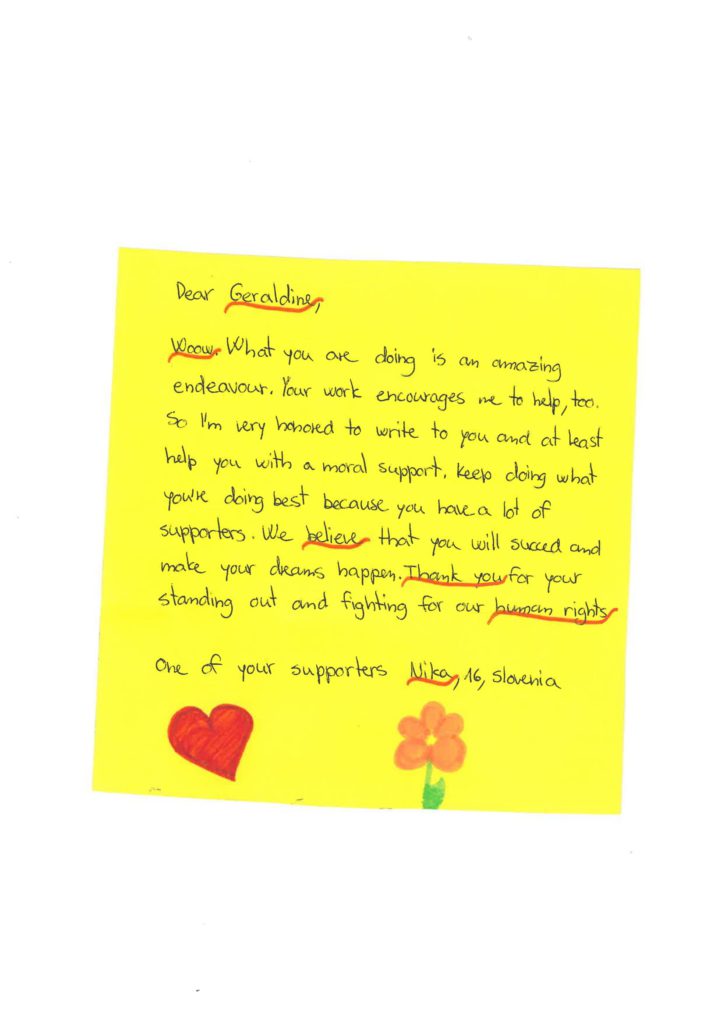 Dear Geraldine,
Woow. What you are doing is an amazing
endeavour. Your work encourages me to help, too.
So I'm very honored to write to you and at least
help you with a moral support. Keep doing what
you're doing best because you have a lot of
supporters. We believe that you will succed and
make your dreams happen. Thank you for your
standing out and fighting for our human rights
One of your supporters Nika, 16, Slovenia